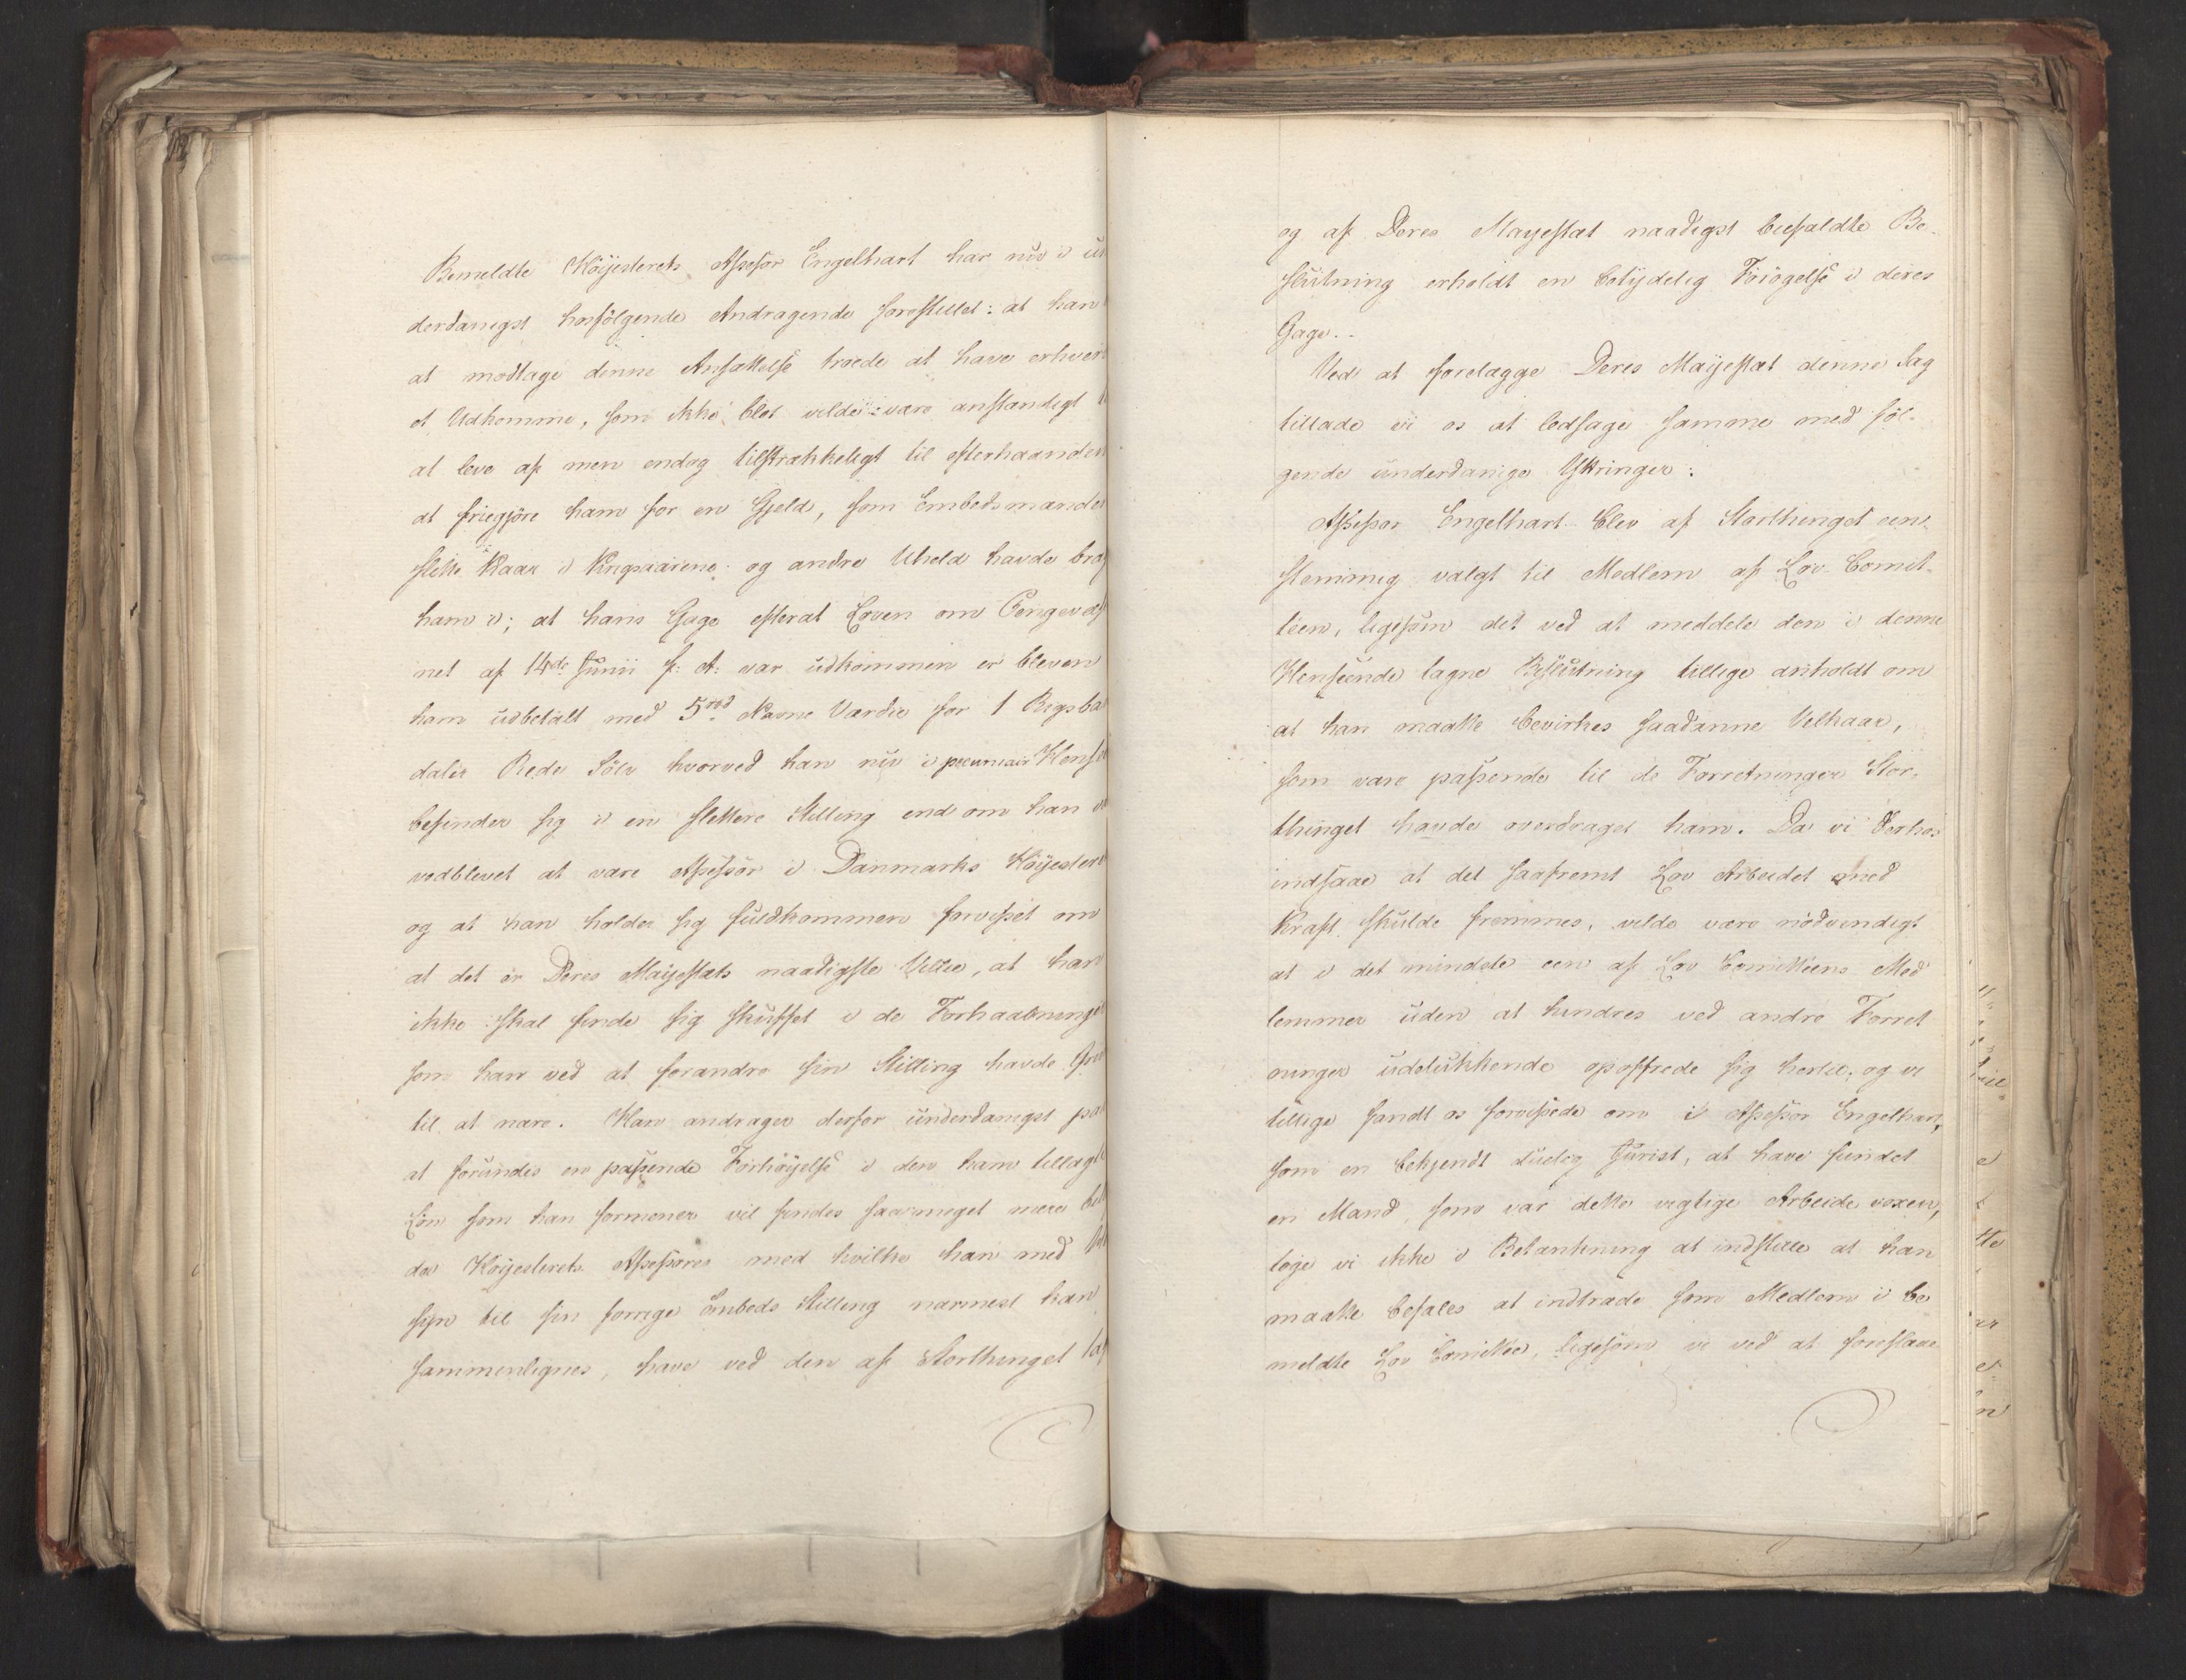 Bemeldte Höyesterets Assessor Engelhart har nu i un
derdanigst hosfölgende Andragende forestillet: at han
at modtage denne Ansættelse troede at have erhver
et Udkomme, som ikke blot vilde være anstændigt
at leve af men endog tilstrækkeligt til efterhaanden
at friegjöre ham for en Gjeld, som Embedsmandes
slette Kaar i Krigsaarene og andre Uheld havde brag
ham i; at hans Gage efterat Loven om Pengevæs
net af 14de Junii f: A: var udkommen er bleven
ham udbetalt med 5rbd Navne Værdie for 1 Rigsba
daler Rede Sölv hvorved han nu i pecuniair Hense
befinder sig i en slettere Stilling end om han
vedblevet at være Assessor i Danmarks Höyestere
og at han holder sig fuldkommen forvisset om
at det er Deres Mayestæts naadigste Villie, at han
ikke skal finde sig skuffet i de Forhaabninger
som han ved at forandre sin Stilling havde
til at nære. Han andrager derfor underdanigst paa
at forundes en passende Forhöyelse i den ham tillagte
Lön som han formener vil findes saameget mere
da Höyesterets Assessorer med hvilke han med
syn til sin forrige Embeds Stilling nærmest kan
sammenlignes, have ved den af Storthinget
og af Deres Mayestæt naadigst bifaldte Be-
slutning erholdt en betydelig Forögelse i deres
Gage.
Ved at forelægge Deres Mayestæt denne Sag
tillade vi os at ledsage samme med föl-
gende underdanige Yttringer:
Assessor Engelhart blev af Storthinget een-
stemmig valgt til Medlem af Lov-Comit-
téen, ligesom det ved at meddele den i denne
Henseende tagne Beslutning tillige anholdt om
at han maatte bevirkes saadanne Velkaar,
som være passende til de Forretninger Stor-
thinget havde overdraget ham. Da vi derhos
indsaae at det saafremt Lov Arbeidet med
Kraft skulde fremmes, vilde være nödvendigt
at i det mindste een af Lov Comitteens Med
lemmer uden at hindres ved andre Forret
ninger udelukkende opoffrede sig hertil; og vi
tillige fandt os forvissede om i Assessor Engelhart,
som en bekjendt duelig Jurist, at have fundet
en Mand, som var dette vigtige Arbeide voxen,
toge vi ikke i Betænkning at indstille at han
maatte befales at indtræde som Medlem i be
meldte Lov Comitteé, ligesom vi ved at foreslaae